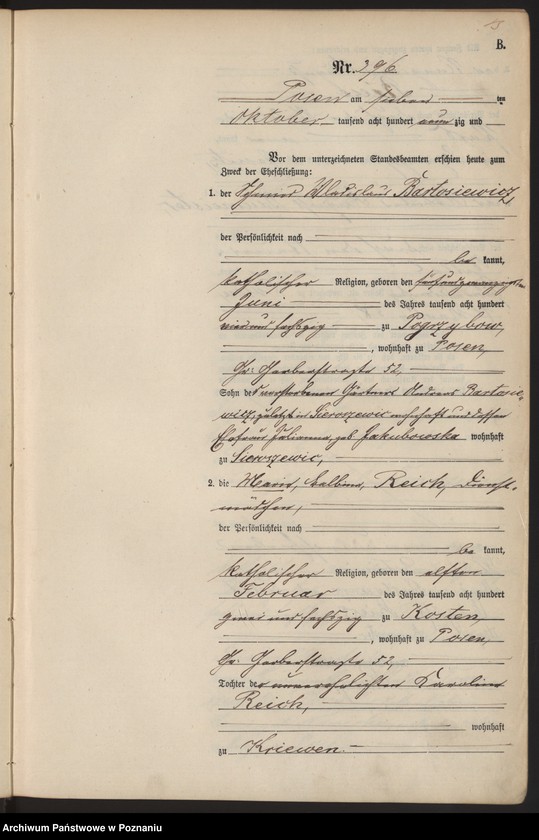 15
B.
Nr. 296.
Posen am sieben ten
Oktober tausend acht hundert neun zig und
Vor dem unterzeichneten Standesbeamten erschien heute zum
Zweck der Eheschließung:
1. der Wladislaus Bartosiewicz,
der Persönlichkeit nach
be kannt,
katholischer Religion, geboren den fünfundzwanzigsten
Juni des Jahres tausend acht hundert
und sechszig zu Pogrzybow,
, wohnhaft zu Posen,
Gr: Gerberstraße 52,
Sohn des verstorbenen Gärtners Andreas Bartosie-
wicz, zuletzt in Sieroszewic wohnhaft und dessen
Ehefrau Julianna geb. Jakubowska wohnhaft
zu Sieroszewic,
2. die Maria, Balbina, Reich, Dienst-
mädchen,
der Persönlichkeit nach
be kannt,
katholischer Religion, geboren den elften
Februar des Jahres tausend acht hundert
zwei und sechszig zu Kosten,
, wohnhaft zu Posen,
Gr: Gerberstraße 52,
Tochter der unverehelichten Karoline
Reich,
wohnhaft
zu Kriewen.
Archiwum Państwowe w Poznaniu